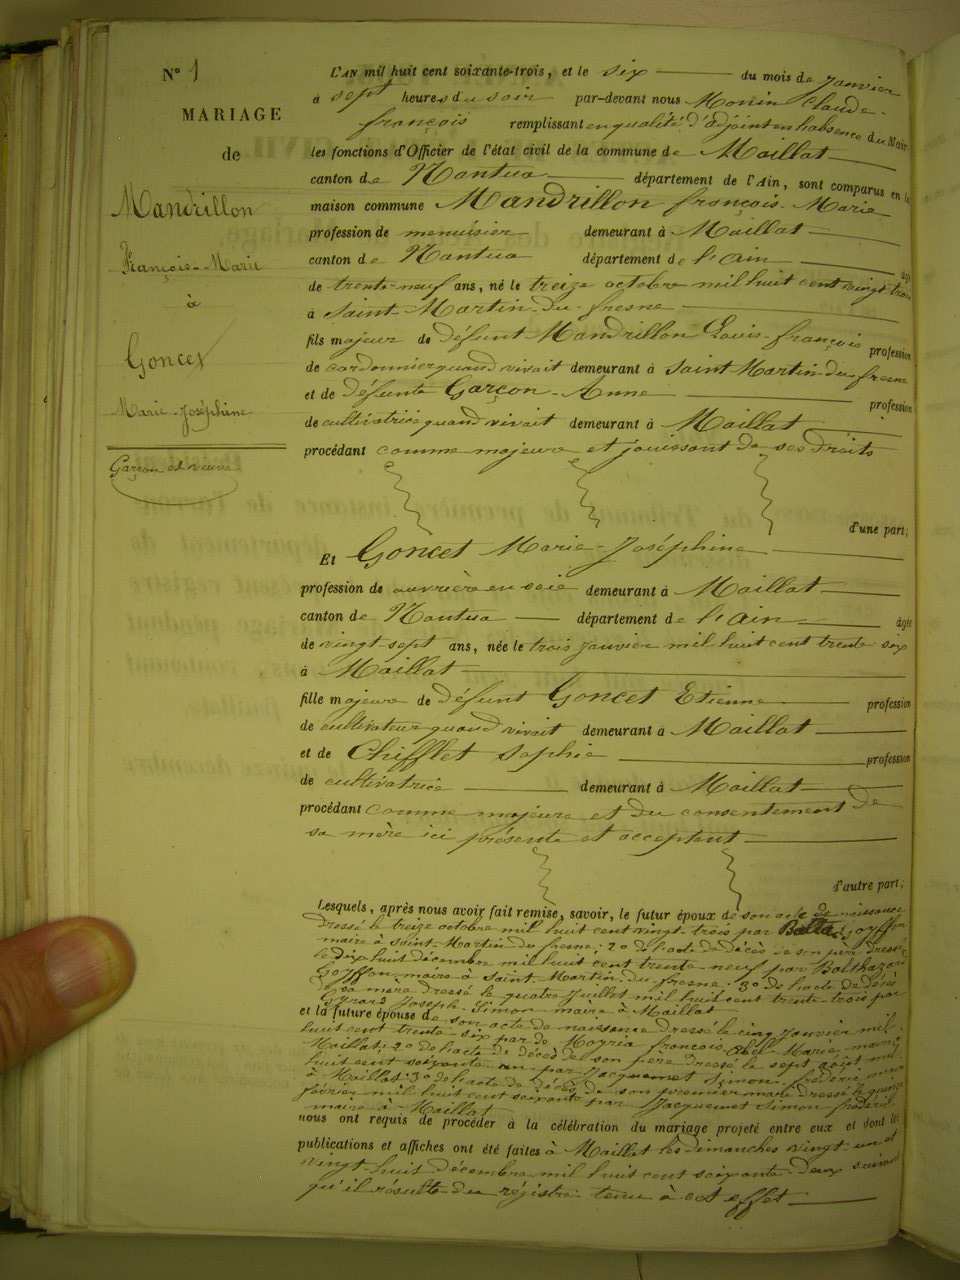 N° 1
MARIAGE
de
Mandrillon
François-Marie
à
Goncet
Marie-Joséphine
Garçon et veuve
L'AN mil huit cent soixante-trois, et le six du mois de Janvier
à sept heures du soir par-devant nous Monin Claude-
françois remplissant en qualité d'adjoint en l'absence du Maire
les fonctions d'Officier de l'état civil de la commune de Maillat
canton de Nantua département de l'Ain, sont comparus en la
maison commune Mandrillon françois-Marie
profession de menuisier demeurant à Maillat
canton de Nantua département de l'ain âgé
de trente-neuf ans, né le treize octobre mil huit cent vingt trois
à Saint-Martin-du-fresne
fils majeur de défunt Mandrillon Louis-françois profession
de cordonnier quand vivait demeurant à Saint Martin-du-fresne
et de défunte Garçon-Anne profession
de cultivatrice quand vivait demeurant à Maillat
procédant comme majeure et jouissant de ses droits
d'une part;
Et Goncet Marie-Joséphine
profession de ouvrière en soie demeurant à Maillat
canton de Nantua département de l'ain âgée
de vingt-sept ans, née le trois janvier mil huit cent trente six
à Maillat
fille majeure de défunt Goncet Etienne profession
de cultivateur quand vivait demeurant à Maillat
et de Chifflet Sophie profession
de cultivatrice demeurant à Maillat
procédant comme majeure et du consentement de
sa mère ici présente et acceptant
d'autre part;
Lesquels, après nous avoir fait remise, savoir, le futur époux de son acte de naissance
dressé le treize octobre mil huit cent vingt trois par Goyffon
maire à Saint-Martin du fresne; 2° de l'acte de décès de son père dressé
le dix huit décembre mil huit cent trente neuf par Balthazard
Goyffon maire à Saint-Martin-du fresne; 3° de l'acte de décès
de sa mère dressé le quatre Juillet mil huit cent trente-trois par
Joseph-Simon maire à Maillat
et la future épouse de son acte de naissance dressé le cinq Janvier mil
huit cent trente-six par de Moyria françois Abel-Marie, maire
Maillat; 2° de l'acte de décès de son père dressé le sept août mil
huit cent soixante un par Jacquemet Simon frédéric maire
à Maillat; 3° de l'acte de décès de son premier mari dressé le quinze
février mil huit cent soixante par Jacquemet Simon frédéric
maire à Maillat
nous ont requis de procéder à la célébration du mariage projeté entre eux et dont les
publications et affiches ont été faites à Maillat les dimanches vingt-un et
vingt-huit décembre mil huit cent soixante-deux suivant
qu'il résulte du régistre tenu à cet effet